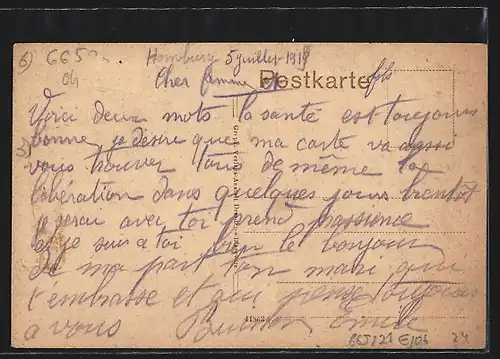 6) 665
04
Homburg 5 juillet 1919
Cher femme et fils
Postkarte
Voici deux mots la santé est toujours
bonne, je désire que ma carte va aussi
vous trouver tous de même la
libération dans quelques jours bientôt
je serai avec toi prend patience
et je suis a toi bien le bonjour
de ma part ton mari qui
t'embrasse et qui pense toujours
a vous Emile
41863
665/21 E/04 24